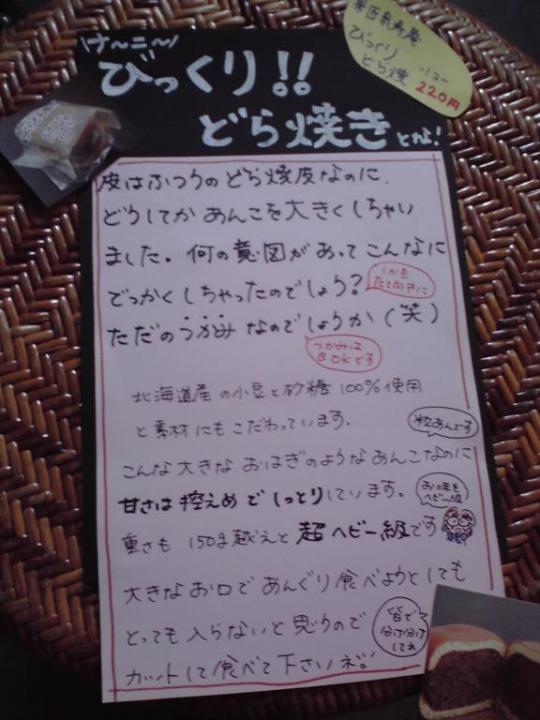 ナ〜ニ〜
びっくり!!
どら焼きとな!
びっくり
どら焼
-1コ-
220円
皮はふつうのどら焼皮なのに、
どうしてかあんこを大きくしちゃい
ました。何の意図があってこんなに
でっかくしちゃったのでしょう?
しかも
たて向きに
ただのうかみなのでしょうか(笑)
つかみは
OKです
北海道産の小豆と砂糖100%使用
と素材にもこだわっています。
粒あんです
こんな大きなおはぎのようなあんこなのに
甘さは控えめでしっとりしています。
お味も
ヘビー級
重さも150g越えと超ヘビー級です
大きなお口であんぐり食べようとしても
とっても入らないと思うので
皆で
分け分け
してネ
カットして食べて下さいネ!